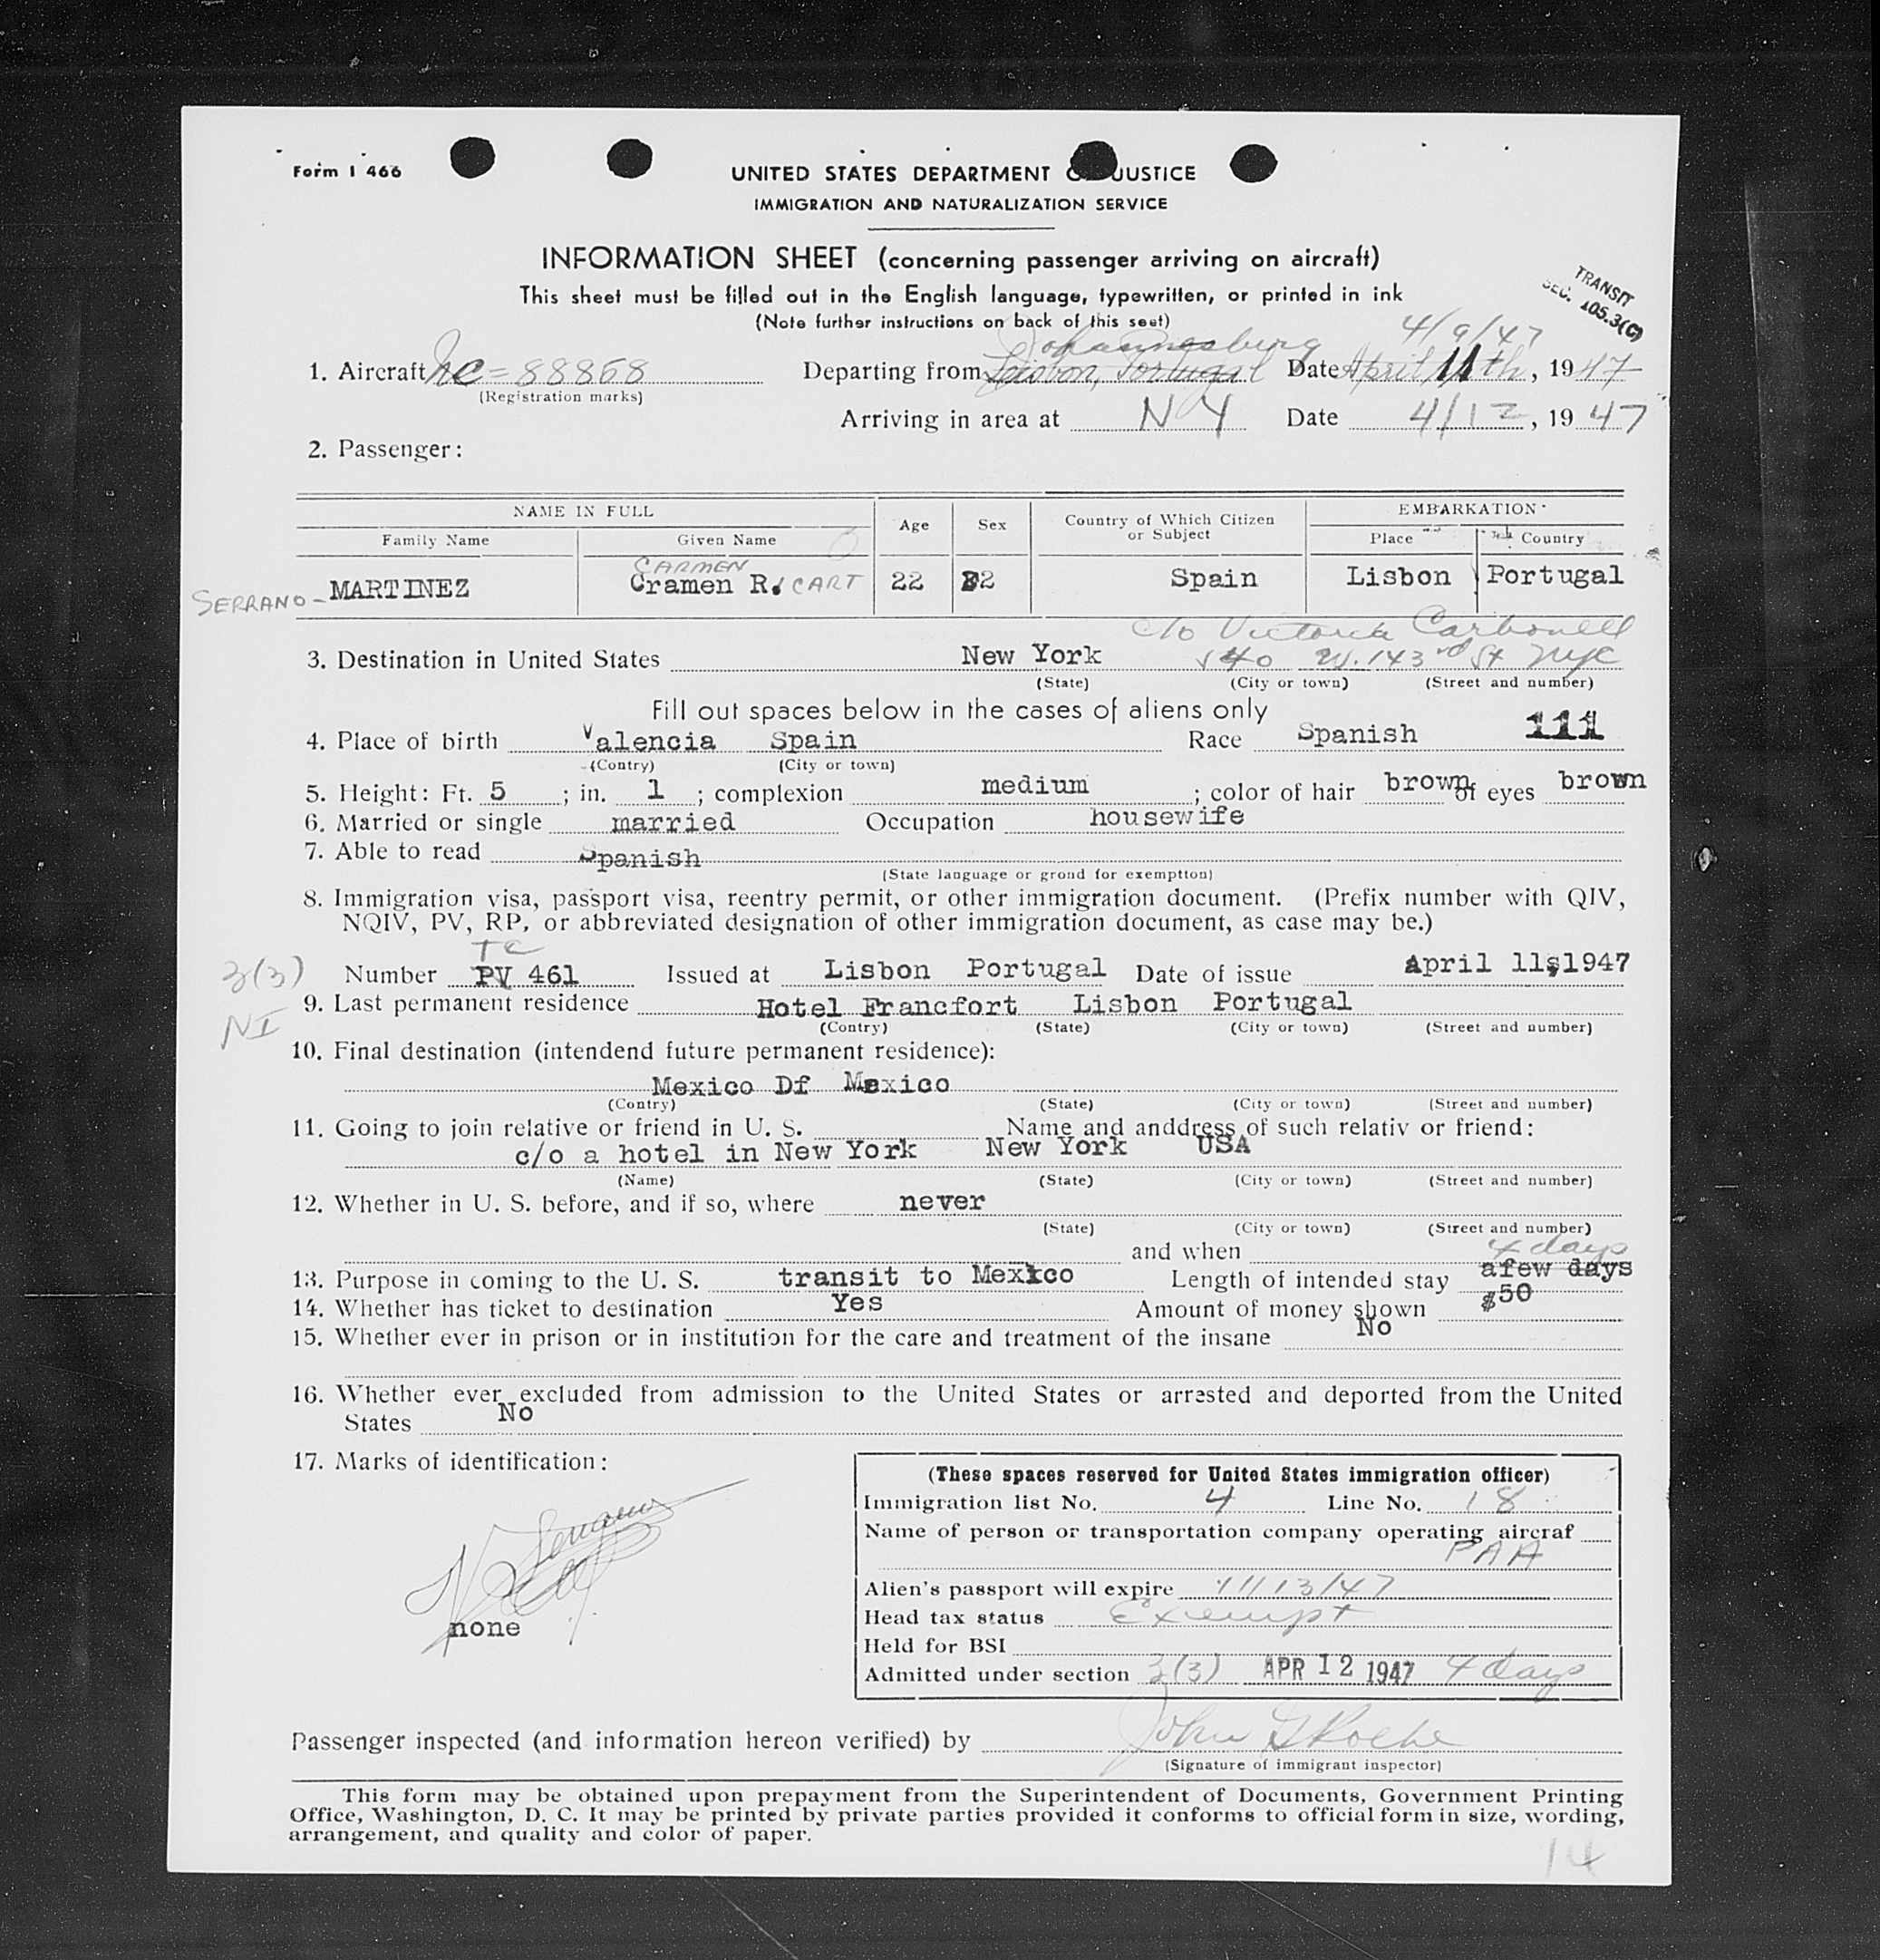 Form I 466
UNITED STATES DEPARTMENT OF JUSTICE
IMMIGRATION AND NATURALIZATION SERVICE
INFORMATION SHEET (concerning passenger arriving on aircraft)
This sheet must be filled out in the English language, typewritten, or printed in ink
(Note further instructions on back of this seet)
TRANSIT
SEC. 105.3(C)
Johannesburg 4/9/47
1. Aircraft NC=88868 Departing from Lisbon, Portugal Date April 11th, 1947
(Registration marks)
Arriving in area at NY Date 4/12, 1947
2. Passenger:
NAME IN FULL Age Sex Country of Which Citizen or Subject EMBARKATION
Family Name Given Name Place Country
CARMEN
SERRANO- MARTINEZ Cramen R. CART 22 2 Spain Lisbon Portugal
c/o Victoria Carbonell
3. Destination in United States New York 540 W. 143rd St NYC
(State) (City or town) (Street and number)
Fill out spaces below in the cases of aliens only
4. Place of birth Valencia Spain Race Spanish 111
(Contry) (City or town)
5. Height: Ft. 5 ; in. 1 ; complexion medium ; color of hair brown of eyes brown
6. Married or single married Occupation housewife
7. Able to read Spanish
(State language or grond for exemption)
8. Immigration visa, passport visa, reentry permit, or other immigration document. (Prefix number with QIV,
NQIV, PV, RP, or abbreviated designation of other immigration document, as case may be.)
TC
3(3) Number PV 461 Issued at Lisbon Portugal Date of issue April 11,1947
NI 9. Last permanent residence Hotel Francfort Lisbon Portugal
(Contry) (State) (City or town) (Street and number)
10. Final destination (intendend future permanent residence):
Mexico Df Mexico
(Contry) (State) (City or town) (Street and number)
11. Going to join relative or friend in U. S. Name and anddress of such relativ or friend:
c/o a hotel in New York New York USA
(Name) (State) (City or town) (Street and number)
12. Whether in U. S. before, and if so, where never
(State) (City or town) (Street and number)
and when 4 days
13. Purpose in coming to the U. S. transit to Mexico Length of intended stay afew days
14. Whether has ticket to destination Yes Amount of money shown $50
15. Whether ever in prison or in institution for the care and treatment of the insane No
16. Whether ever excluded from admission to the United States or arrested and deported from the United
States No
17. Marks of identification:
none
(These spaces reserved for United States immigration officer)
Immigration list No. 4 Line No. 18
Name of person or transportation company operating aircraf
PAA
Alien's passport will expire 11/13/47
Head tax status Exempt
Held for BSI
Admitted under section 3(3) APR 12 1947 4 days
Passenger inspected (and information hereon verified) by John G Roche
(Signature of immigrant inspector)
This form may be obtained upon prepayment from the Superintendent of Documents, Government Printing
Office, Washington, D. C. It may be printed by private parties provided it conforms to official form in size, wording,
arrangement, and quality and color of paper.
14